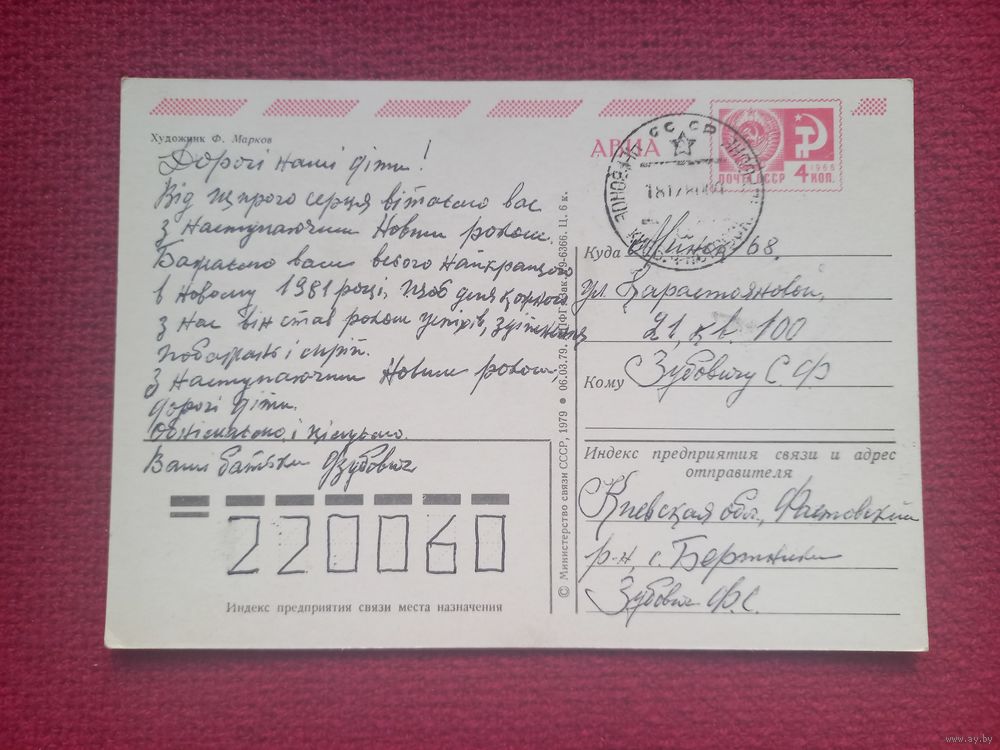 Художник Ф. Марков
Дорогі наші діти!
Від щирого серця вітаємо вас
з наступаючим Новим роком.
Бажаємо вам всього найкращого
в новому 1981 році, щоб для кожного
з нас він став роком успіхів, здійснення
побажань і мрій.
З наступаючим Новим роком,
дорогі діти.
Обнімаємо і цілуємо.
Ваші батьки
220060
Индекс предприятия связи места назначения
© Министерство связи СССР, 1979 ● 06.03.79. 6366. Ц. 6 к.
АВИА
СССР
ПОЧТА СССР
1966
4 КОП.
Куда Минск 68,
ул. Карастояновой,
21, кв. 100
Кому Зубовичу С. Ф
Индекс предприятия связи и адрес
отправителя
Киевская обл., Фастовский
р-н, с.
Зубович Ф. С.
www.ay.by